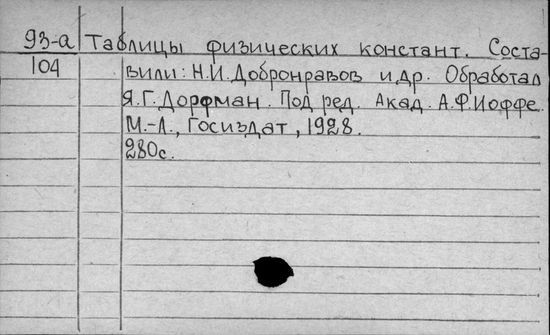 93-а Таблицы физических констант. Соста-
104 вили: Н.И.Добронравов и др. Обработал
Я.Г.Дорфман. Под ред. Акад. А.Ф.Иоффе.
М.-Л., Госиздат, 1928.
280с.